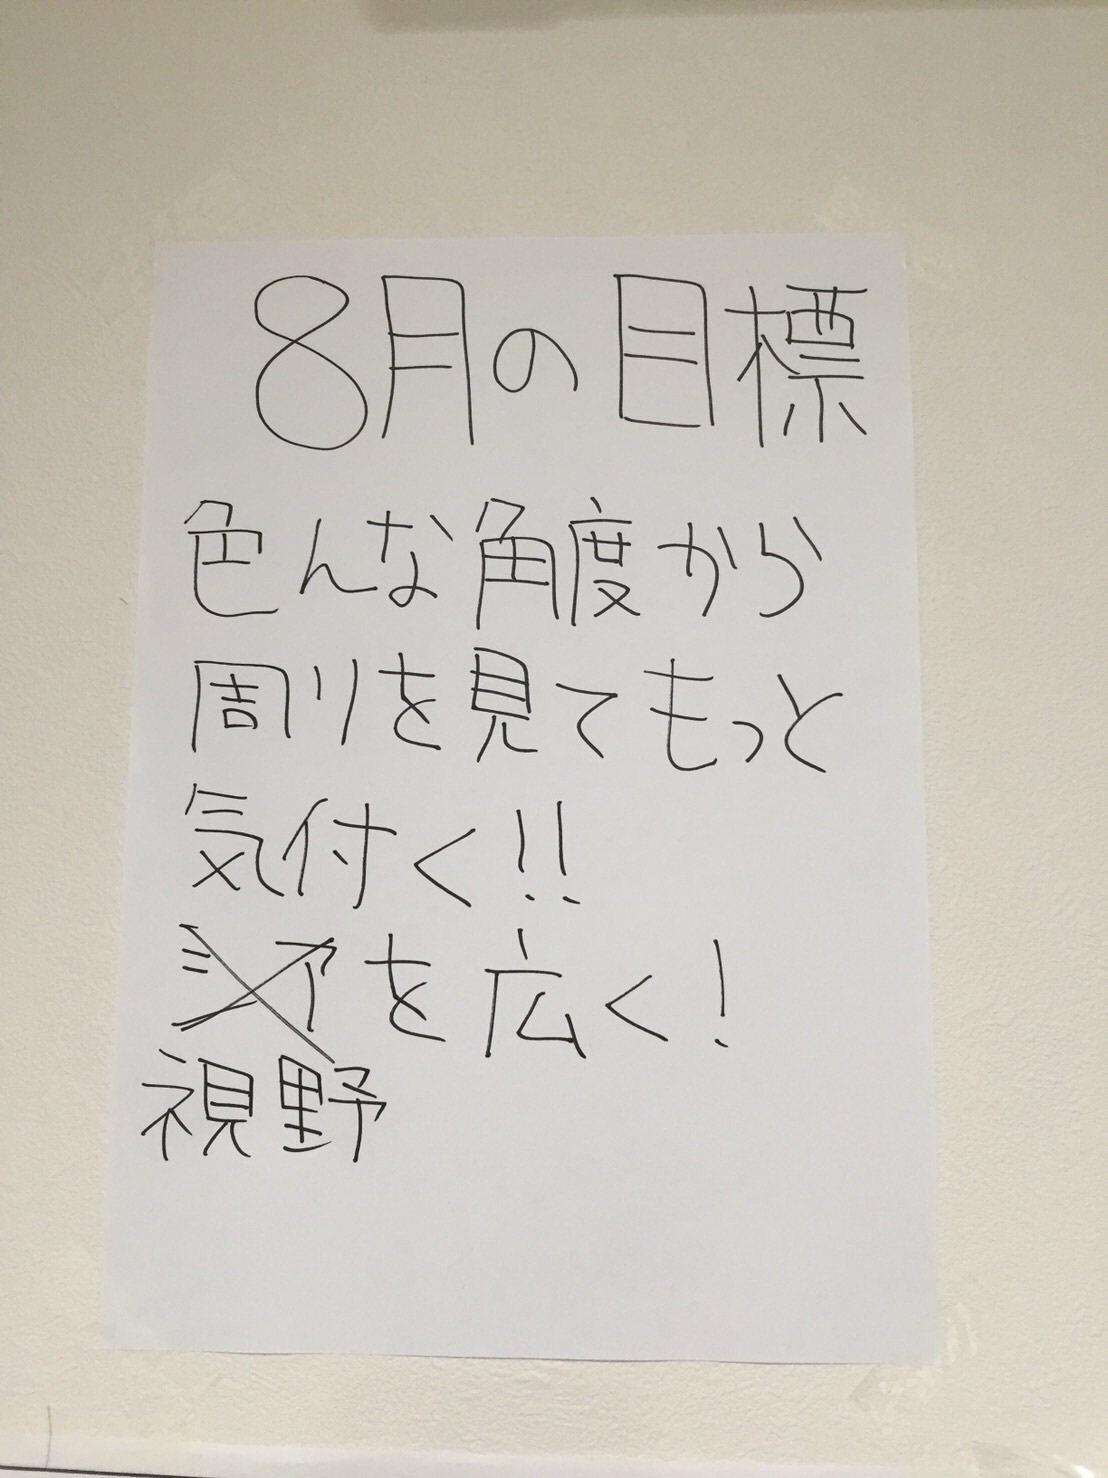 8月の目標
色んな角度から
周りを見てもっと
気付く!!
シヤを広く!
視野